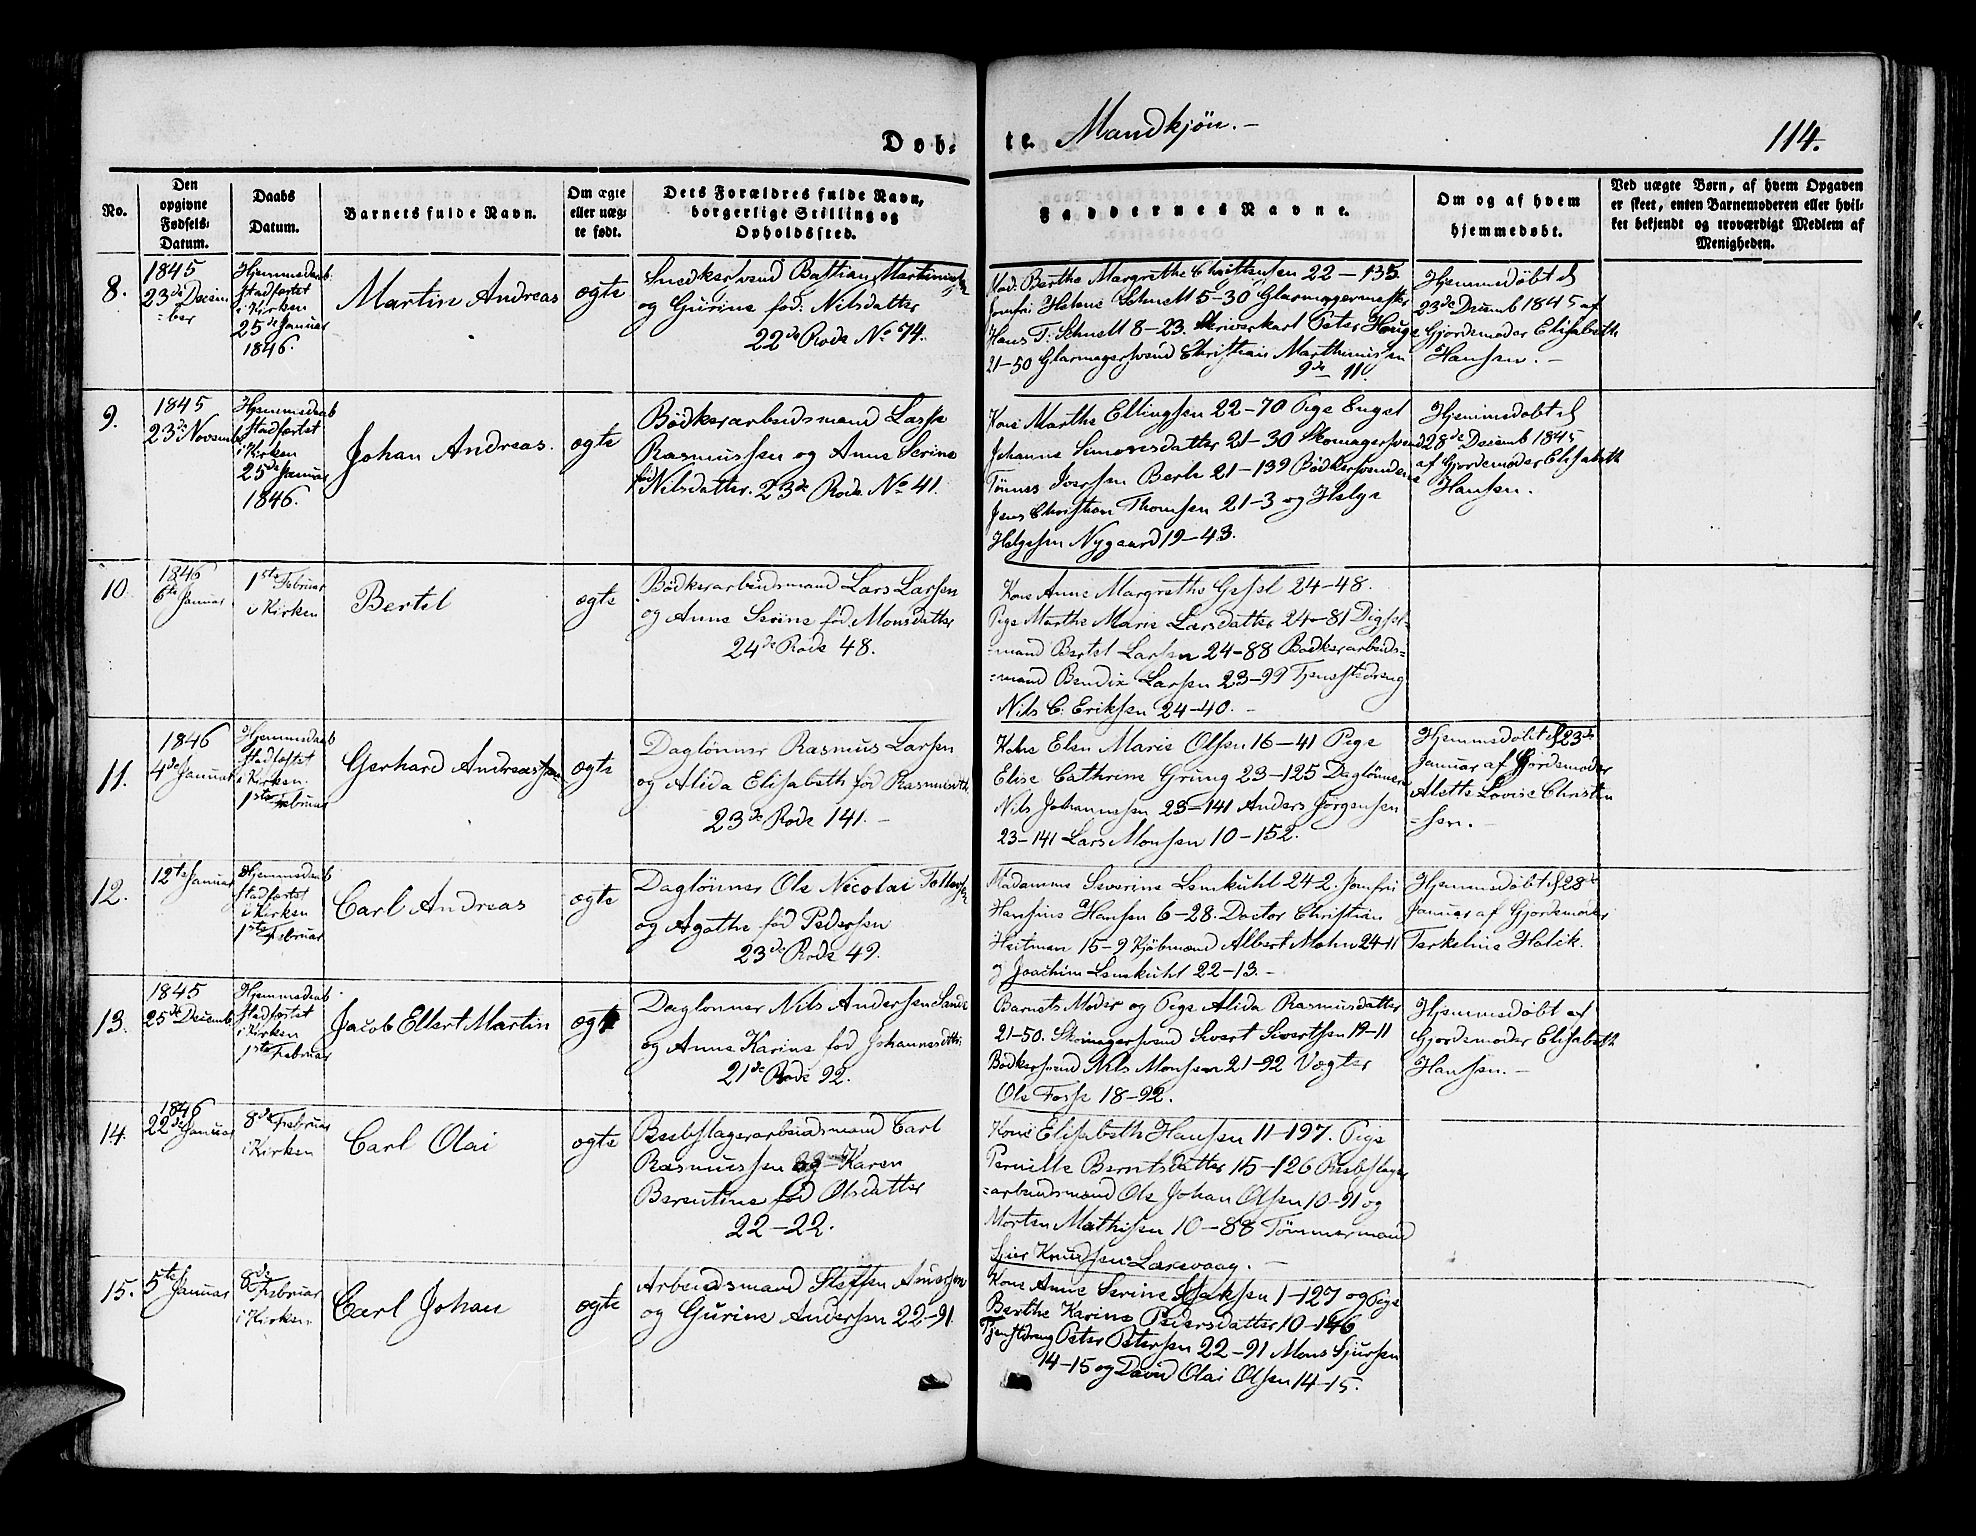 Døb-
te. Mandkjön.-
114.
No.
Den opgivne Fødsels-Datum.
Daabs Datum.
Barnets fulde Navn.
Om ægte eller uæg-te født.
Dets Forældres fulde Navn, borgerlige Stilling og Opholdssted.
Faddernes Navne.
Om og af hvem hjemmedøbt.
Ved uægte Børn, af hvem Opgaven
er skeet, enten Barnemoderen eller hvil-
ket bekjendt og troværdigt Medlem af
Menigheden.
8.
1845
23de Decem
=ber
Hjemmedaab
stadfæstet
i Kirken
25de Januar
1846.
Martin Andreas
ægte
Snedkersvend Bastian
og Gurine fød. Nilsdatter
22de Rode No 74.
Mad. Berthe Margrethe Christensen 22-135
Jomfri Helene Schnell 5-30 Glarmagermester
Hans T. Schnell 8-23. Skriverkarl Peter Houge
21-50 Glarmagersvend Christian Marthinussen
9de 11.
Hjemmedøbt d
23de Decemb 1845 af
Gjordemoder Elisabeth
Hansen.-
9.
1845
23de Novemb
Hjemmedaab
Stadfæstet
i Kirken
25de Januar
1846.
Johan Andreas.
ægte
Bödkerarbeidsmand Lasse
Rasmussen og Anne Serine
fød Nilsdatter. 23de Rode No 41.
Kone Marthe Ellingsen 22-70 Pige Engel
Johanne Simonsdatter 21-30 Skomagersvend
Tönnes Iversen Berle 21-139 Bödkersvendene
Jens Christian Thomsen 21-3 og Helge
Helgesen Nygaard 19-43.
Hjemmedøbt d
28de Decemb 1845
af Gjordemoder Elisabeth
Hansen.
10
1846
6te Januar
1ste Februar
i Kirken
Bertel
ægte
Bödkerarbeidsmand Lars Larsen
og Anne Serine fød Monsdatter
24de Rode 48.
Kone Anne Margrethe 24-48.
Pige Marthe Marie Larsdatter 24-81 Digsel=
=mand Bertel Larsen 24-88 Bødkerarbeids=
=mand Bendix Larsen 23-99 Tjenestedreng
Nils C. Eriksen 24-40.-
11.
1846
4de Januar
Hjemmedaab
stadfæstet
i Kirken.
1ste Februar
Gerhard Andreas
ægte
Daglönner Rasmus Larsen
og Alida Elisabeth fød Rasmusdtt.
23de Rode 141.-
Kone Elen Marie Olsen 16-41 Pige
Elise Cathrine Grung 23-125 Daglönnerne
Nils Johannesen 23-141 Anders Jörgensen
23-141 Lars Monsen 10-152.
Hjemmedøbt d 23de
Januar af Gjordemoder
Alette Lovise Christen
=sen.-
12.
12te Januar
Hjemmedaab
stadfæstet
i Kirken
1ste Februar
Carl Andreas
ægte
Daglönner Ole Nicolai Tollefsen
og Agathe fød Pedersen
23de Rode 49.
Madamme Severine Lemkuhl 24-2. Jomfri
Hansine Hansen 6-28. Doctor Christian
Heitman 15-9 Kjöbmand Albert Mohn 24-11
og Joachim Lemkuhl 22-13.-
Hjemmedøbt d 28de
Januar af Gjordemoder
Terkeline Holck.
13.
1845
25de Decemb
Hjemmedaab
stadfæstet
i Kirken
1ste Februar
Jacob Ellert Martin
ægte
Daglönner Nils Andersen Sande
og Anne Karine fød Johannesdtt:
21de Rode 92.
Barnets Moder og Pige Alida Rasmusdatter
21-50. Skomagersvend Sivert Sivertsen 19-11
Bödkersvend Nils Monsen 21-92 Vægter
Ole Fosse 18-92.
Hjemmedøbt af
Gjordemoder Elisabeth
Hansen.-
14.
1846
22de Januar
8de Februar
i Kirken
Carl Olai
ægte
Reebslagerarbeidsmand Carl
Rasmussen og Karen
Berentine fød Olsdatter
22-22.
Kone Elisabeth Hansen 11-197. Pige
Pernille Berntsdatter 15-126 Reebslager
=arbeidsmænd Ole Johan Olsen 10-91 og
Morten Mathisen 10-88 Tömmermand
Knudsen Laxevaag.-
15.
5te Januar
8de Februar
i Kirken
Carl Johan
ægte
Arbeidsmand Steffen
og Gurine Andersen 22-91.
Kone Anne Serine 1-127 og Pige
Berthe Karine Pedersdatter 10-146
Tjenstdreng Peter Petersen 22-91 Mons Sjursen
14-15 og David Olai Olsen 14-15.